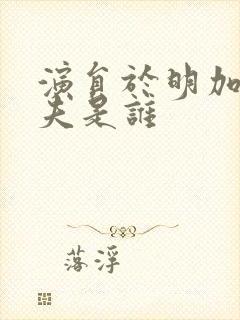 演員於明加
夫是誰
落浮